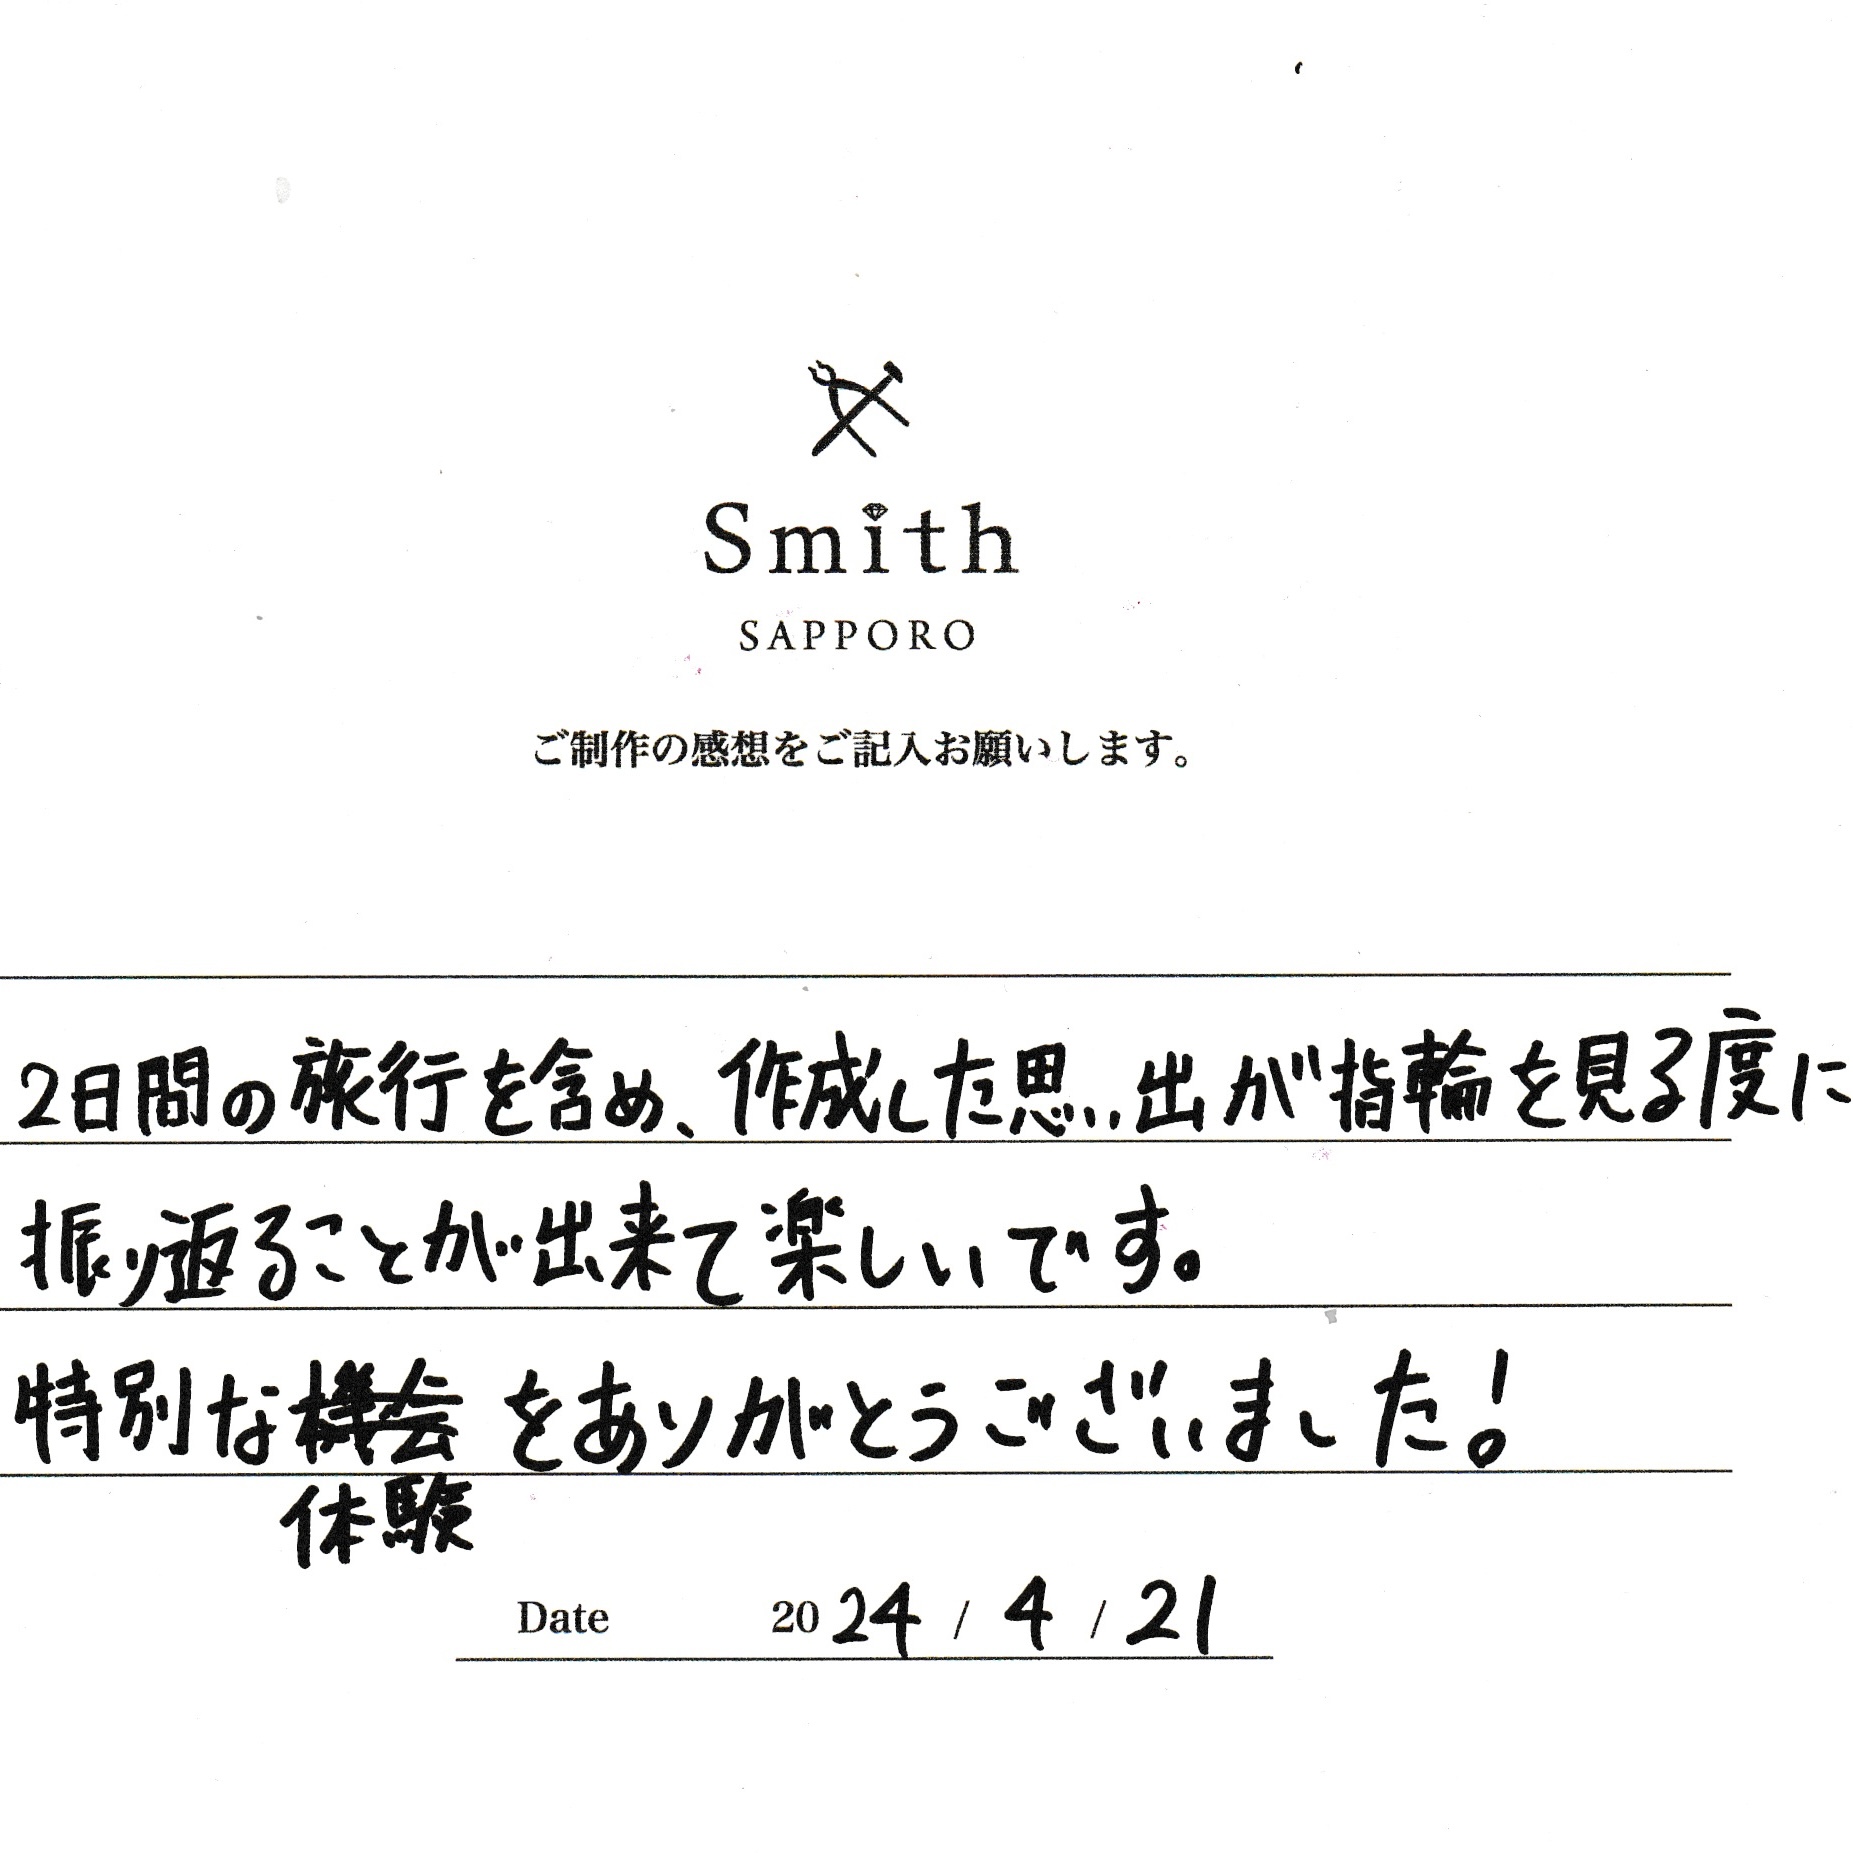 Smith
SAPPORO
ご制作の感想をご記入お願いします。
2日間の旅行を含め、作成した思い出が指輪を見る度に
振り返ることが出来て楽しいです。
特別な機会をありがとうございました!
体験
Date 2024 / 4 / 21